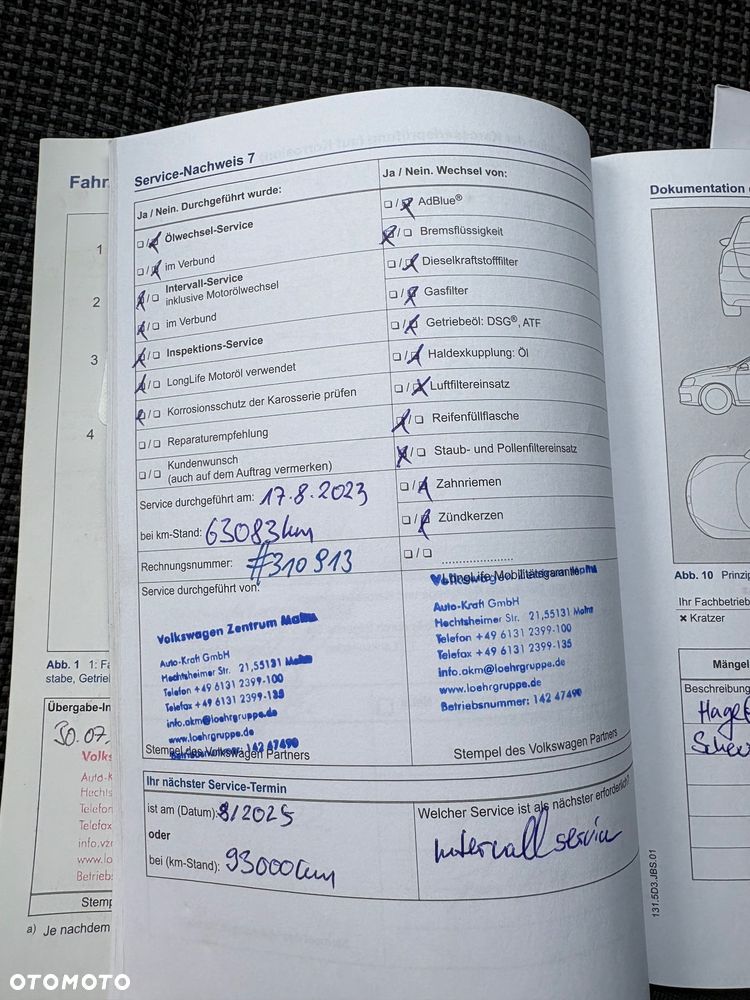 Fahr
1
2
3
4
Abb. 1 1: Fa
stabe, Getrie
Übergabe-In
30.07.
Volks
Auto-K
Hechts
Telefon
Telefax
info.vz
www.lo
Betrieb
Stemp
a) Je nachdem
Service-Nachweis 7
Ja / Nein. Durchgeführt wurde:
❑/❑ Ölwechsel-Service
❑/❑ im Verbund
❑/❑ Intervall-Service
inklusive Motorölwechsel
❑/❑ im Verbund
❑/❑ Inspektions-Service
❑/❑ LongLife Motoröl verwendet
❑/❑ Korrosionsschutz der Karosserie prüfen
❑/❑ Reparaturempfehlung
❑/❑ Kundenwunsch
(auch auf dem Auftrag vermerken)
Service durchgeführt am: 17.8.2023
bei km-Stand: 63083km
Rechnungsnummer: #310913
Service durchgeführt von:
Volkswagen Zentrum Mainz
Auto-Kraft GmbH
Hechtsheimer Str. 21, 55131 Mainz
Telefon +49 6131 2399-100
Telefax +49 6131 2399-135
info.akm@loehrgruppe.de
www.loehrgruppe.de
Betriebsnummer: 142 47490
Stempel des Volkswagen Partners
Ja / Nein. Wechsel von:
❑/❑ AdBlue®
❑/❑ Bremsflüssigkeit
❑/❑ Dieselkraftstofffilter
❑/❑ Gasfilter
❑/❑ Getriebeöl: DSG®, ATF
❑/❑ Haldexkupplung: Öl
❑/❑ Luftfiltereinsatz
❑/❑ Reifenfüllflasche
❑/❑ Staub- und Pollenfiltereinsatz
❑/❑ Zahnriemen
❑/❑ Zündkerzen
❑/❑ ....................
LongLife Mobilitätsgarantie
Auto-Kraft GmbH
Hechtsheimer Str. 21, 55131 Mainz
Telefon +49 6131 2399-100
Telefax +49 6131 2399-135
info.akm@loehrgruppe.de
www.loehrgruppe.de
Betriebsnummer: 142 47490
Stempel des Volkswagen Partners
Ihr nächster Service-Termin
ist am (Datum): 8/2025
oder
bei (km-Stand): 93000km
Welcher Service ist als nächster erforderlich?
Intervall service
Dokumentation
Abb. 10 Prinzip
Ihr Fachbetrieb
✖ Kratzer
Mängel
Beschreibung
131.5D3.JBS.01
OTOMOTO